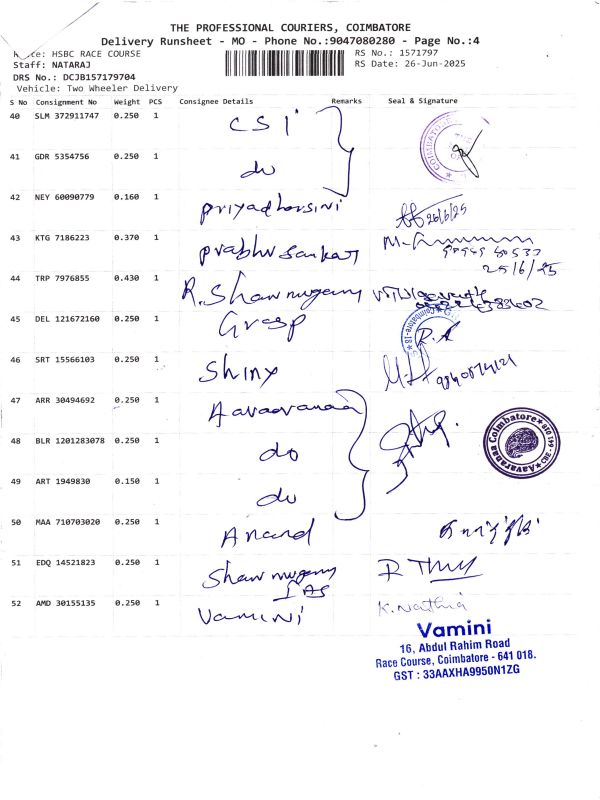 THE PROFESSIONAL COURIERS, COIMBATORE
Delivery Runsheet - MO - Phone No.:9047080280 - Page No.:4
Route: HSBC RACE COURSE
RS No.: 1571797
Staff: NATARAJ
RS Date: 26-Jun-2025
DRS No.: DCJB157179704
Vehicle: Two Wheeler Delivery
S No Consignment No Weight PCS Consignee Details Remarks Seal & Signature
40 SLM 372911747 0.250 1 CSI
41 GDR 5354756 0.250 1 do
42 NEY 60090779 0.160 1 priyadharsini 26/6/25
43 KTG 7186223 0.370 1 prabhu sankar
25/6/25
44 TRP 7976855 0.430 1 R. Shanmugam
45 DEL 121672160 0.250 1 Grasp R.A
46 SRT 15566103 0.250 1 Shiny
47 ARR 30494692 0.250 1 Aavaavanaa
48 BLR 1201283078 0.250 1 do
Aavaranaa Coimbatore
CBE - 641 018
49 ART 1949830 0.150 1 do
50 MAA 710703020 0.250 1 Anand
51 EDQ 14521823 0.250 1 Shanmugam
IAS
52 AMD 30155135 0.250 1 Vamini K. Nathiā
Vamini
16, Abdul Rahim Road
Race Course, Coimbatore - 641 018.
GST : 33AAXHA9950N1ZG